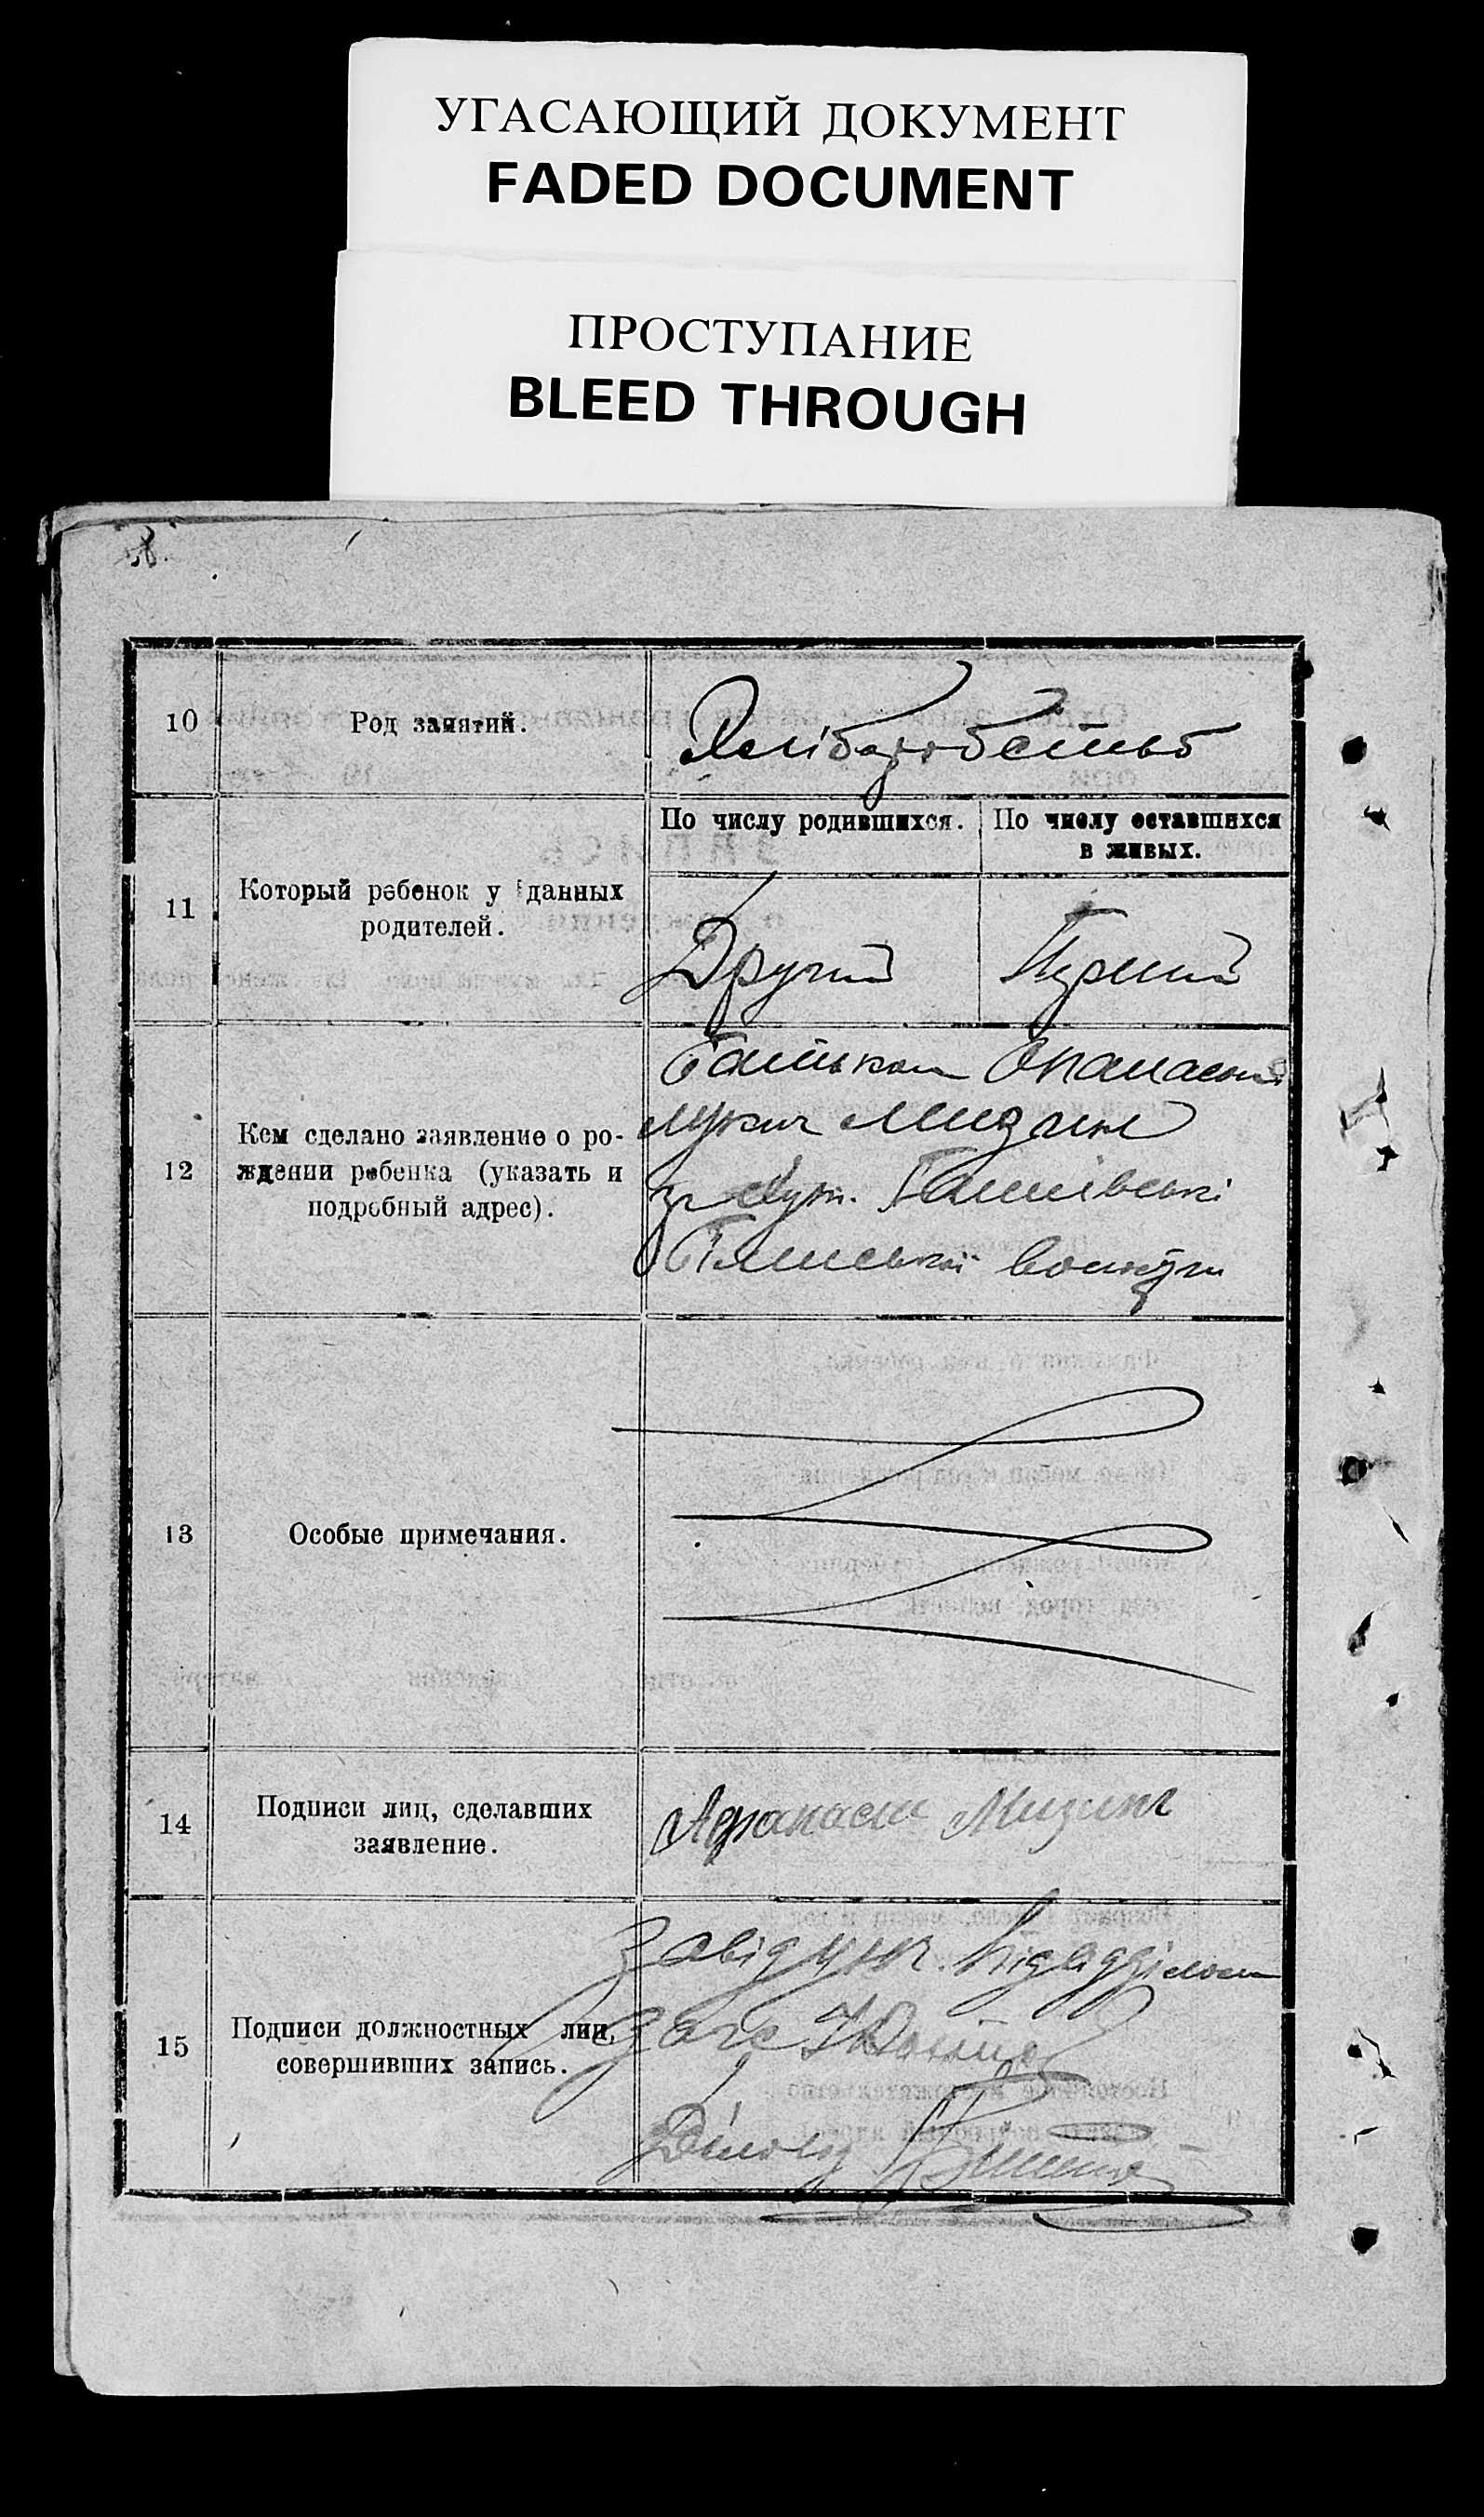 УГАСАЮЩИЙ ДОКУМЕНТ
FADED DOCUMENT
ПРОСТУПАНИЕ
BLEED THROUGH
10
Род занятий.
11
Который ребенок у данных
родителей.
По числу родившихся.
По числу оставшихся
в живых.
Другий
Перший
12
Кем сделано заявление о ро-
ждении ребенка (указать и
подробный адрес).
Батьком Опанасом
Мизин
з хут.
волости
13
Особые примечания.
14
Подписи лиц, сделавших
заявление.
Афанасий Мизин
15
Подписи должностных лиц,
совершивших запись.
Завідуюч. підвідділом
Загс
Діловод